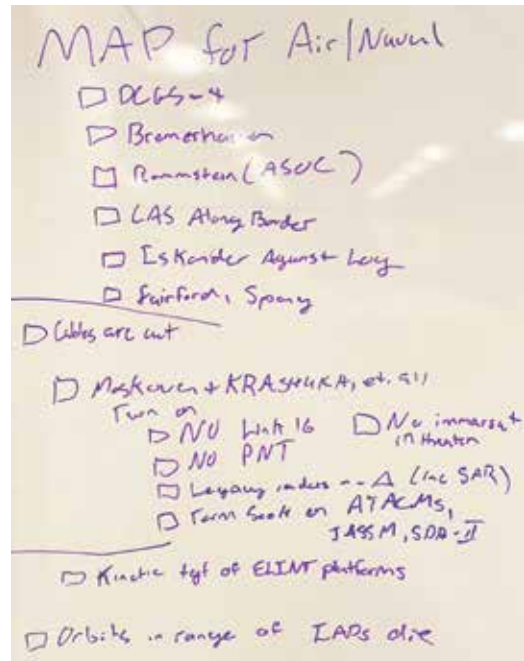 MAP for Air/Naval
DCGS-4
Bremerhaven
Rammstein (ASOC)
LAS Along Border
Iskander Against Log
Fairford, Spang
Cables are cut
Moskova + KRASHUKA, et. all
Turn on
NO Link 16
No immarsat
in theater
NO PNT
Legacy radars -- Δ (inc SAR)
Term Seek on ATACMs,
JASSM, SDB-II
Kinetic tgt of ELINT platforms
Orbits in range of IADs die